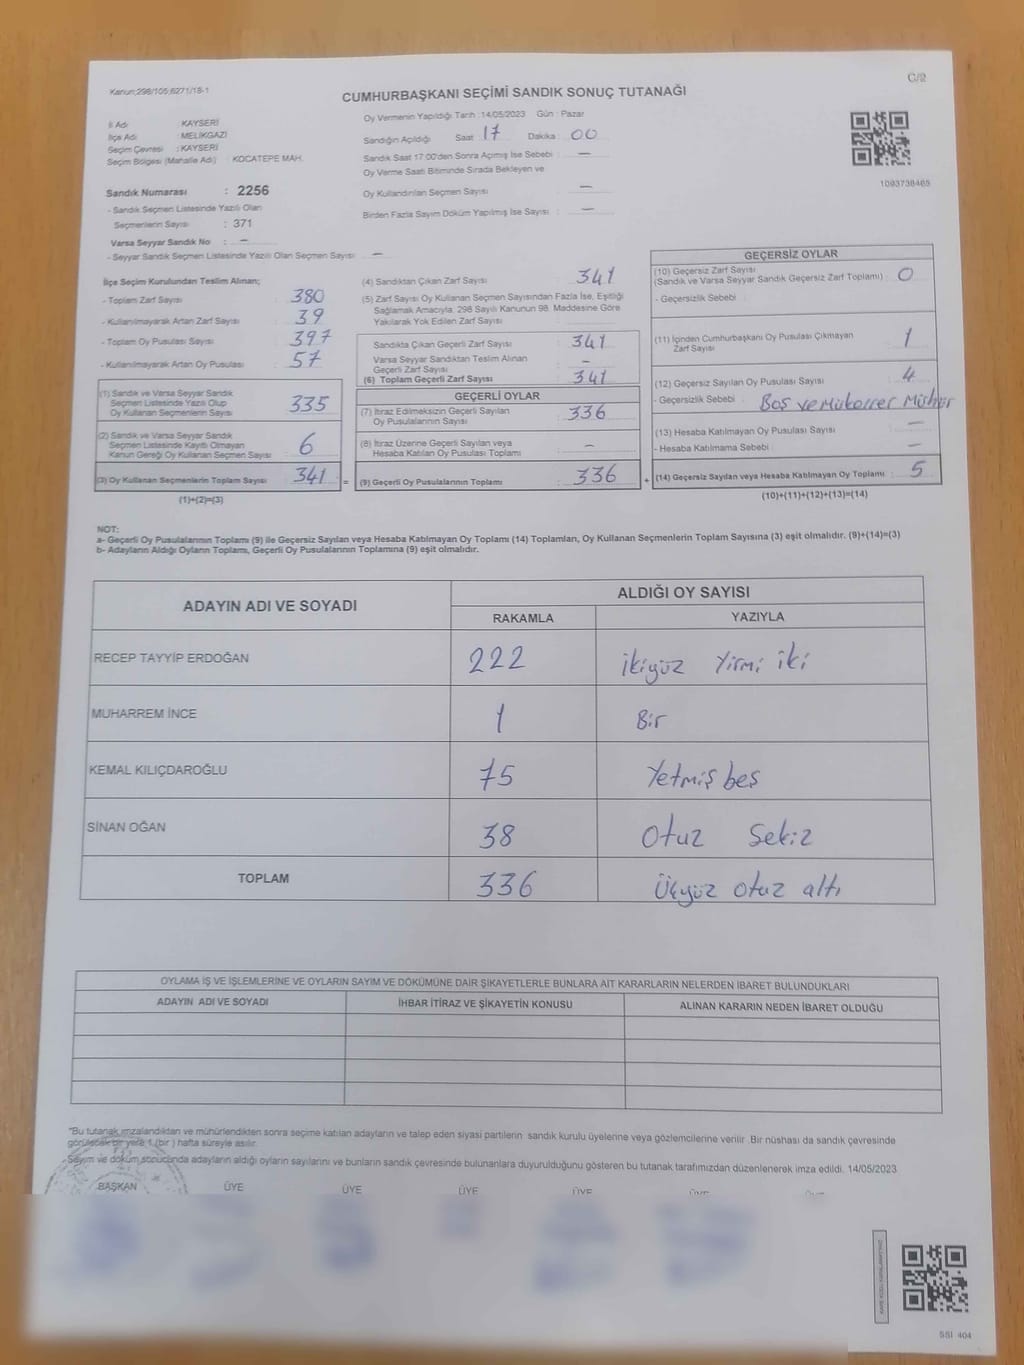 C/2
Kanun;298/105;6271/18-1
CUMHURBAŞKANI SEÇİMİ SANDIK SONUÇ TUTANAĞI
İl Adı : KAYSERİ
İlçe Adı : MELİKGAZİ
Seçim Çevresi : KAYSERİ
Seçim Bölgesi (Mahalle Adı) : KOCATEPE MAH.
Sandık Numarası : 2256
- Sandık Seçmen Listesinde Yazılı Olan
Seçmenlerin Sayısı : 371
Varsa Seyyar Sandık No : —
- Seyyar Sandık Seçmen Listesinde Yazılı Olan Seçmen Sayısı : —
Oy Vermenin Yapıldığı Tarih :14/05/2023 Gün : Pazar
Sandığın Açıldığı Saat 17 Dakika 00
Sandık Saat 17:00'den Sonra Açılmış İse Sebebi : —
Oy Verme Saati Bitiminde Sırada Bekleyen ve
Oy Kullandırılan Seçmen Sayısı : —
Birden Fazla Sayım Döküm Yapılmış İse Sayısı : —
1093738465
İlçe Seçim Kurulundan Teslim Alınan;
- Toplam Zarf Sayısı : 380
- Kullanılmayarak Artan Zarf Sayısı : 39
- Toplam Oy Pusulası Sayısı : 397
- Kullanılmayarak Artan Oy Pusulası : 57
(1) Sandık ve Varsa Seyyar Sandık
Seçmen Listesinde Yazılı Olup
Oy Kullanan Seçmenlerin Sayısı : 335
(2) Sandık ve Varsa Seyyar Sandık
Seçmen Listesinde Kayıtlı Olmayan
Kanun Gereği Oy Kullanan Seçmen Sayısı : 6
(3) Oy Kullanan Seçmenlerin Toplam Sayısı : 341 =
(1)+(2)=(3)
(4) Sandıktan Çıkan Zarf Sayısı : 341
(5) Zarf Sayısı Oy Kullanan Seçmen Sayısından Fazla İse, Eşitliği
Sağlamak Amacıyla, 298 Sayılı Kanunun 98. Maddesine Göre
Yakılarak Yok Edilen Zarf Sayısı :
Sandıkta Çıkan Geçerli Zarf Sayısı : 341
Varsa Seyyar Sandıktan Teslim Alınan
Geçerli Zarf Sayısı : —
(6) Toplam Geçerli Zarf Sayısı : 341
GEÇERLİ OYLAR
(7) İtiraz Edilmeksizin Geçerli Sayılan
Oy Pusulalarının Sayısı : 336
(8) İtiraz Üzerine Geçerli Sayılan veya
Hesaba Katılan Oy Pusulası Toplamı : —
(9) Geçerli Oy Pusulalarının Toplamı : 336 +
GEÇERSİZ OYLAR
(10) Geçersiz Zarf Sayısı
(Sandık ve Varsa Seyyar Sandık Geçersiz Zarf Toplamı) : 0
- Geçersizlik Sebebi :
(11) İçinden Cumhurbaşkanı Oy Pusulası Çıkmayan
Zarf Sayısı : 1
(12) Geçersiz Sayılan Oy Pusulası Sayısı : 4
- Geçersizlik Sebebi : Boş ve Mükerrer Mühür
(13) Hesaba Katılmayan Oy Pusulası Sayısı : —
- Hesaba Katılmama Sebebi : —
(14) Geçersiz Sayılan veya Hesaba Katılmayan Oy Toplamı : 5
(10)+(11)+(12)+(13)=(14)
NOT:
a- Geçerli Oy Pusulalarının Toplamı (9) ile Geçersiz Sayılan veya Hesaba Katılmayan Oy Toplamı (14) Toplamları, Oy Kullanan Seçmenlerin Toplam Sayısına (3) eşit olmalıdır. (9)+(14)=(3)
b- Adayların Aldığı Oyların Toplamı, Geçerli Oy Pusulalarının Toplamına (9) eşit olmalıdır.
ADAYIN ADI VE SOYADI
ALDIĞI OY SAYISI
RAKAMLA YAZIYLA
RECEP TAYYİP ERDOĞAN 222 ikiyüz yirmi iki
MUHARREM İNCE 1 Bir
KEMAL KILIÇDAROĞLU 75 Yetmiş beş
SİNAN OĞAN 38 Otuz Sekiz
TOPLAM 336 Üçyüz otuz altı
OYLAMA İŞ VE İŞLEMLERİNE VE OYLARIN SAYIM VE DÖKÜMÜNE DAİR ŞİKAYETLERLE BUNLARA AİT KARARLARIN NELERDEN İBARET BULUNDUKLARI
ADAYIN ADI VE SOYADI İHBAR İTİRAZ VE ŞİKAYETİN KONUSU ALINAN KARARIN NEDEN İBARET OLDUĞU
*Bu tutanak imzalandıktan ve mühürlendikten sonra seçime katılan adayların ve talep eden siyasi partilerin sandık kurulu üyelerine veya gözlemcilerine verilir. Bir nüshası da sandık çevresinde
görülecek bir yere 1 (bir ) hafta süreyle asılır.
- Sayım ve döküm sonucunda adayların aldığı oyların sayılarını ve bunların sandık çevresinde bulunanlara duyurulduğunu gösteren bu tutanak tarafımızdan düzenlenerek imza edildi. 14/05/2023
BAŞKAN ÜYE ÜYE ÜYE ÜYE ÜYE
SSI 404